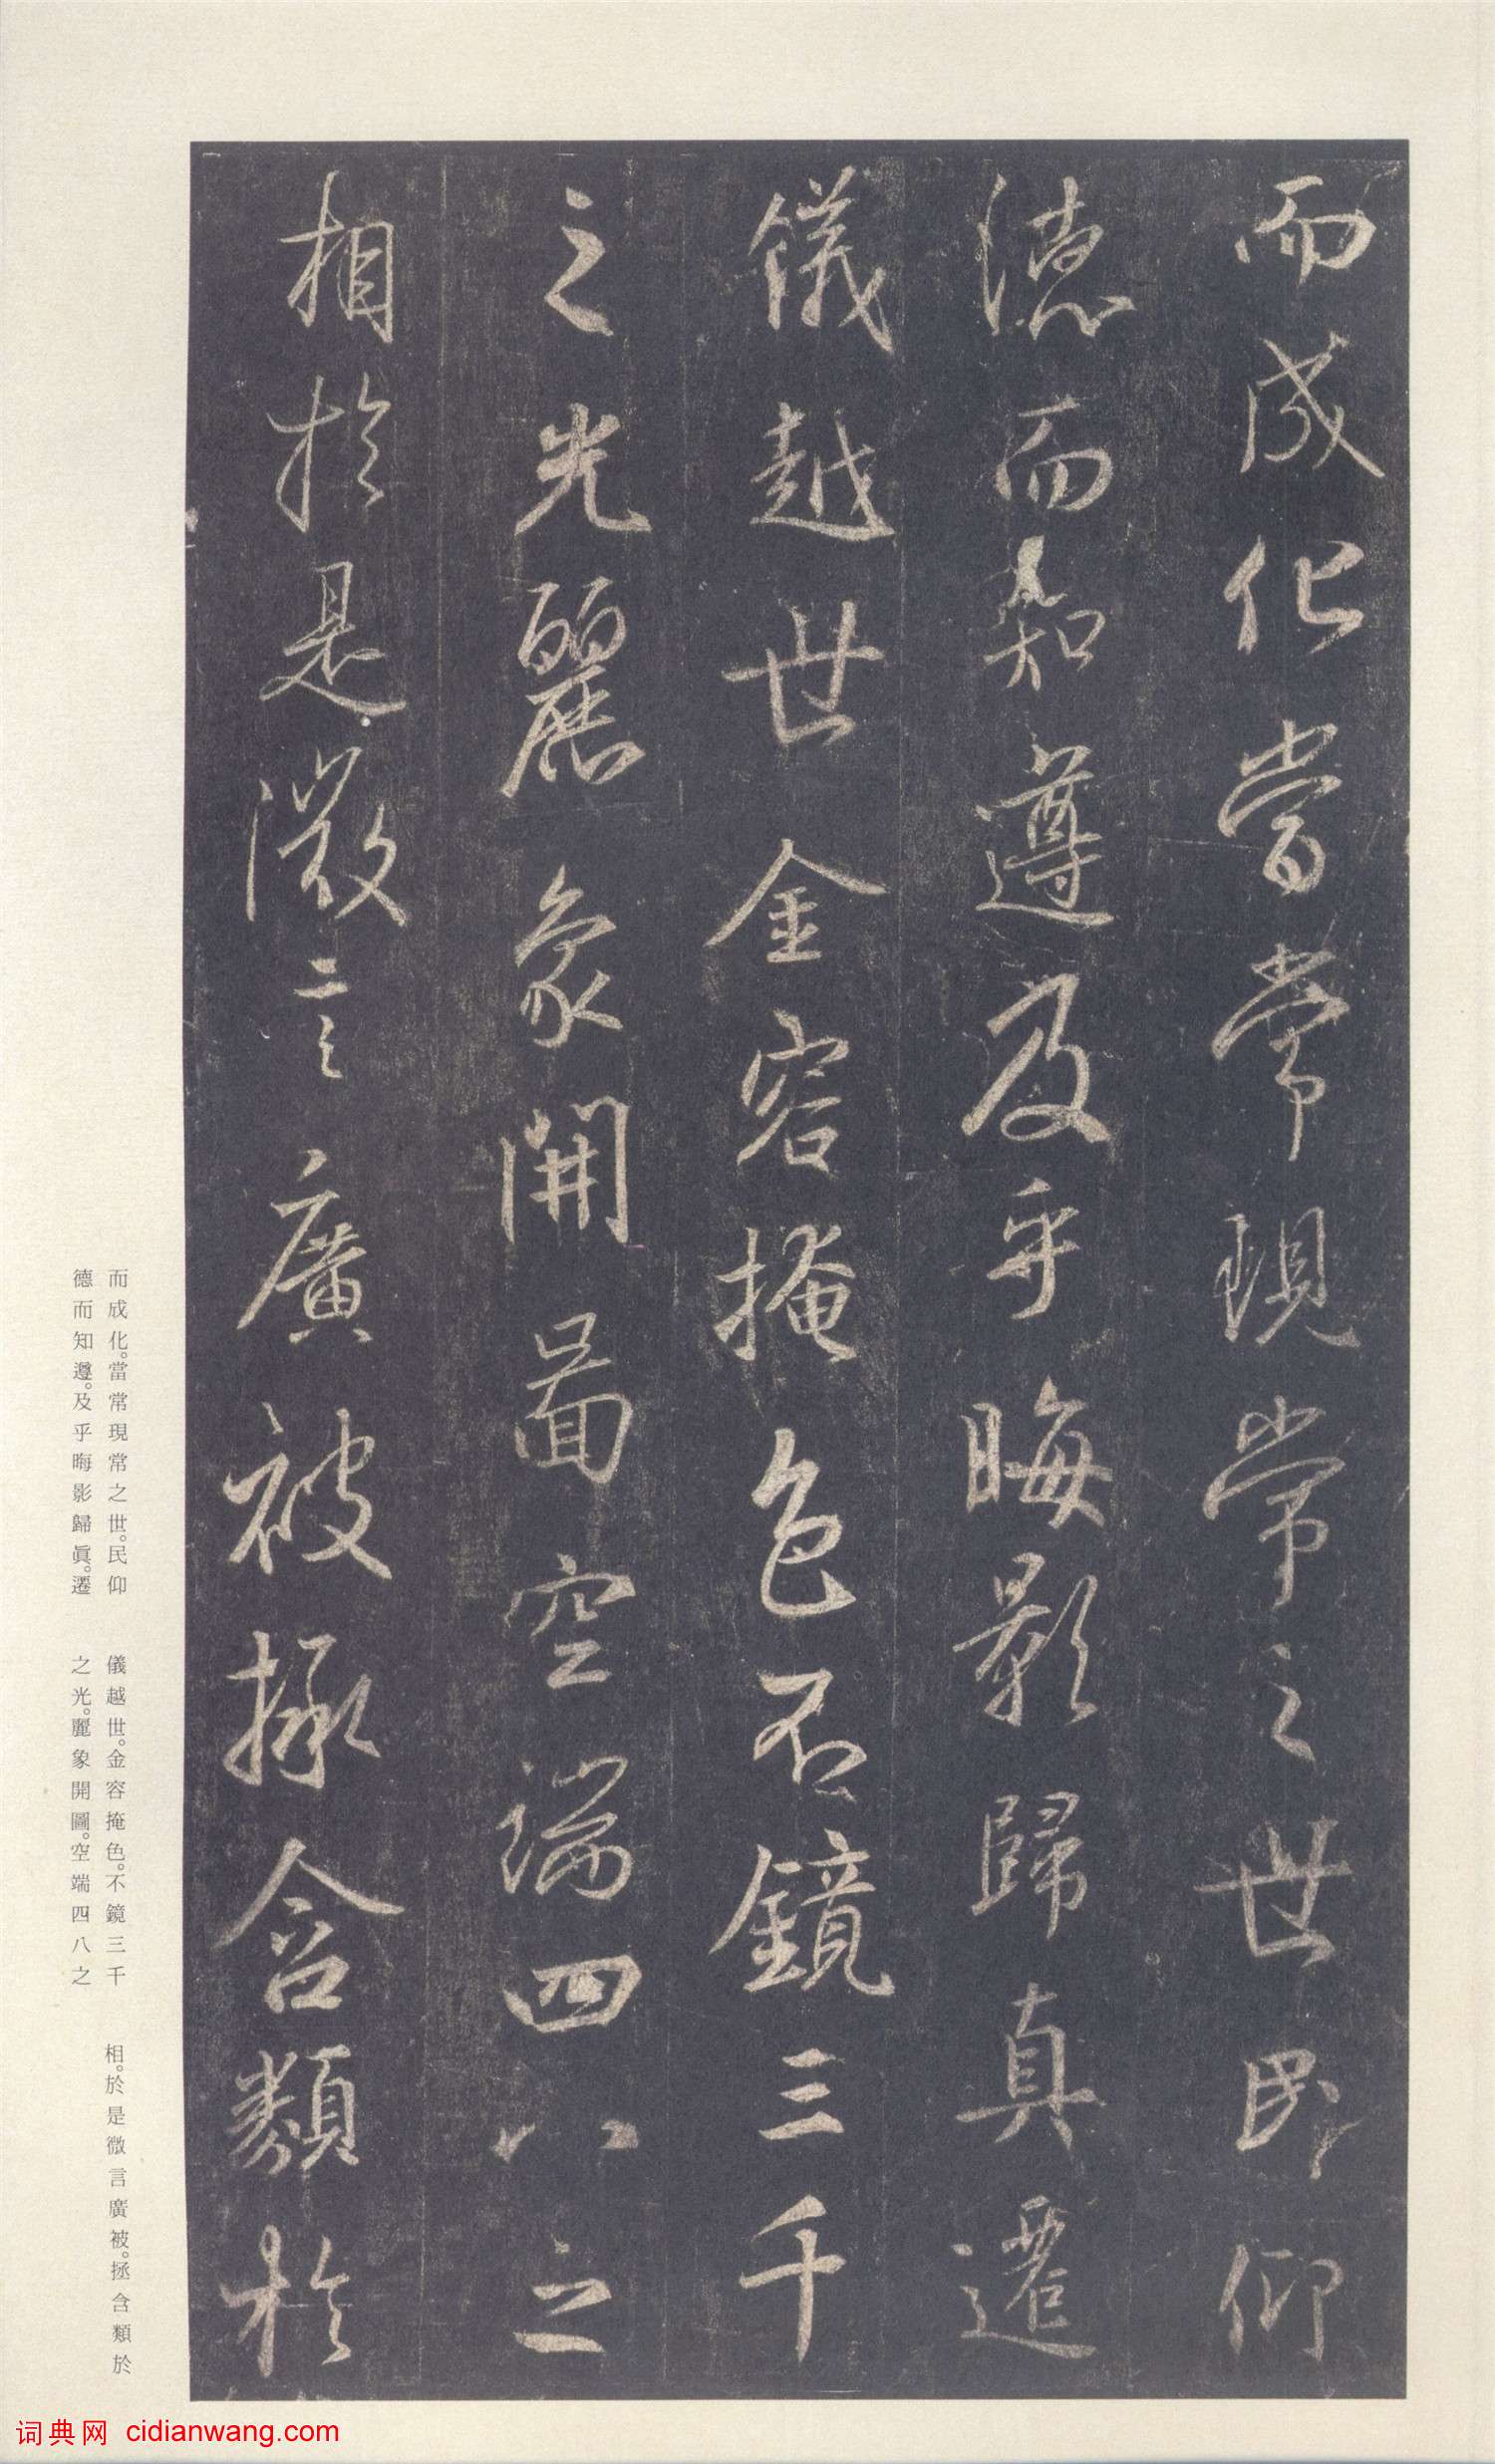 而成化當常現常之世民仰
德而知遵及乎晦影歸真遷
儀越世金容掩色不鏡三千
之光麗象開圖空端四八之
相於是微言廣被拯含類於
而成化。當常現常之世。民仰
德而知遵。及乎晦影歸眞。遷
儀越世。金容掩色。不鏡三千
之光。麗象開圖。空端四八之
相。於是微言廣被。拯含類於
词典网 cidianwang.com